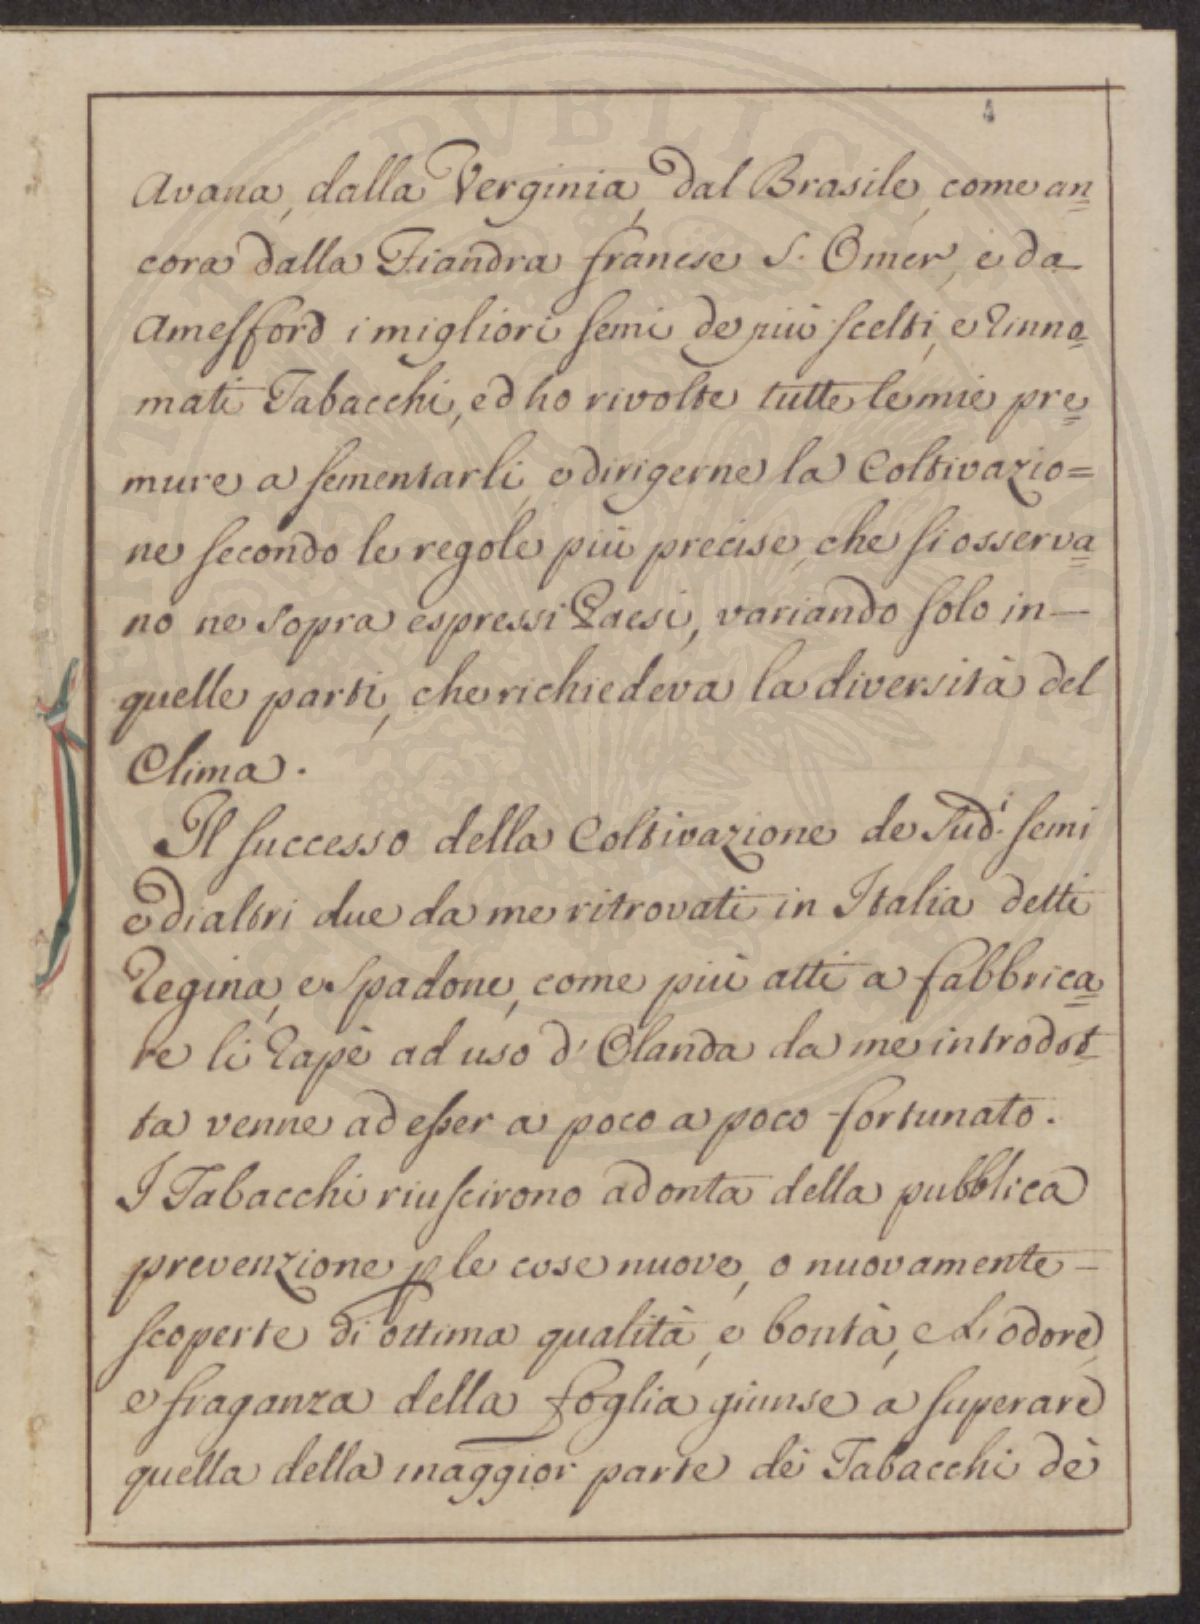 4
Avana, dalla Verginia, dal Brasile, come an=
cora dalla Fiandra franese S. Omer, e da
Amesford i migliori semi de più scelti, e rinno=
mati Tabacchi, ed ho rivolte tutte le mie pre=
mure a sementarli, e dirigerne la Coltivazio=
ne secondo le regole più precise, che si osserva=
no ne sopra espressi Paesi, variando solo in—
quelle parti, che richiedeva la diversità del
Clima.
Il successo della Coltivazione de Sud.i semi
e di altri due da me ritrovati in Italia detti
Regina, e Spadone, come più atti a fabbrica=
re li Rapè ad uso d' Olanda da me introdot=
ta venne ad esser a poco a poco fortunato.
I Tabacchi riuscirono ad onta della pubblica
prevenzione p le cose nuove, o nuovamente—
scoperte di ottima qualità, e bontà, e L'odore,
e fraganza della foglia giunse a superare
quella della maggior parte de' Tabacchi de'